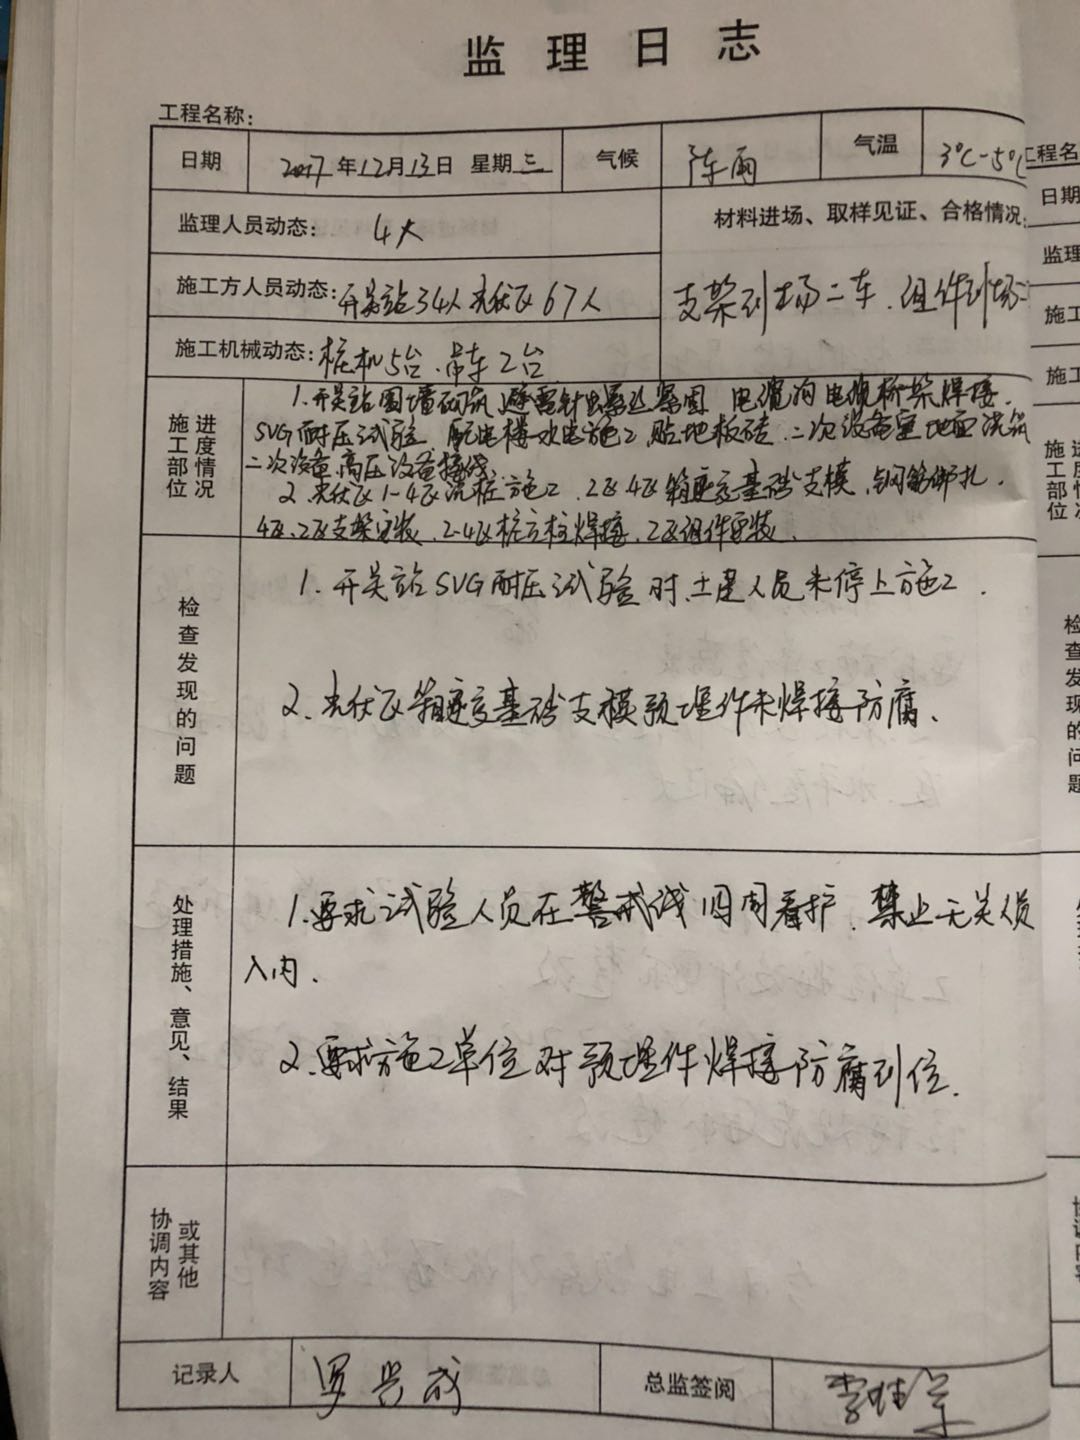 监理日志
工程名称:
日期 2017年12月13日 星期三 气候 阵雨 气温 3℃-5℃
监理人员动态: 4人 材料进场、取样见证、合格情况:
施工方人员动态: 开关站34人 光伏区67人 支架到场二车、组件到场二
施工机械动态: 桩机5台、吊车2台
进度情况 施工部位
1.开关站围墙砌筑 避雷针 紧固 电缆沟电缆桥架焊接、
SVG耐压试验 配电楼水电施工 贴地板砖、二次设备室地面浇筑
二次设备、高压设备接线
2.光伏区1-4区 桩施工、2区4区箱逆变基础支模、钢筋绑扎、
4区、2区支架安装、2-4区桩立柱焊接、2区组件安装、
检查发现的问题
1.开关站SVG耐压试验时、土建人员未停止施工.
2.光伏区箱逆变基础支模预埋件未焊接防腐、
处理措施、意见、结果
1.要求试验人员在警戒线四周看护、禁止无关人员
入内、
2.要求施工单位对预埋件焊接防腐到位.
或其他协调内容
记录人 罗兴成 总监签阅
工程名
日期
监理
施工
施工
进度情况 施工部位
检查发现的问题